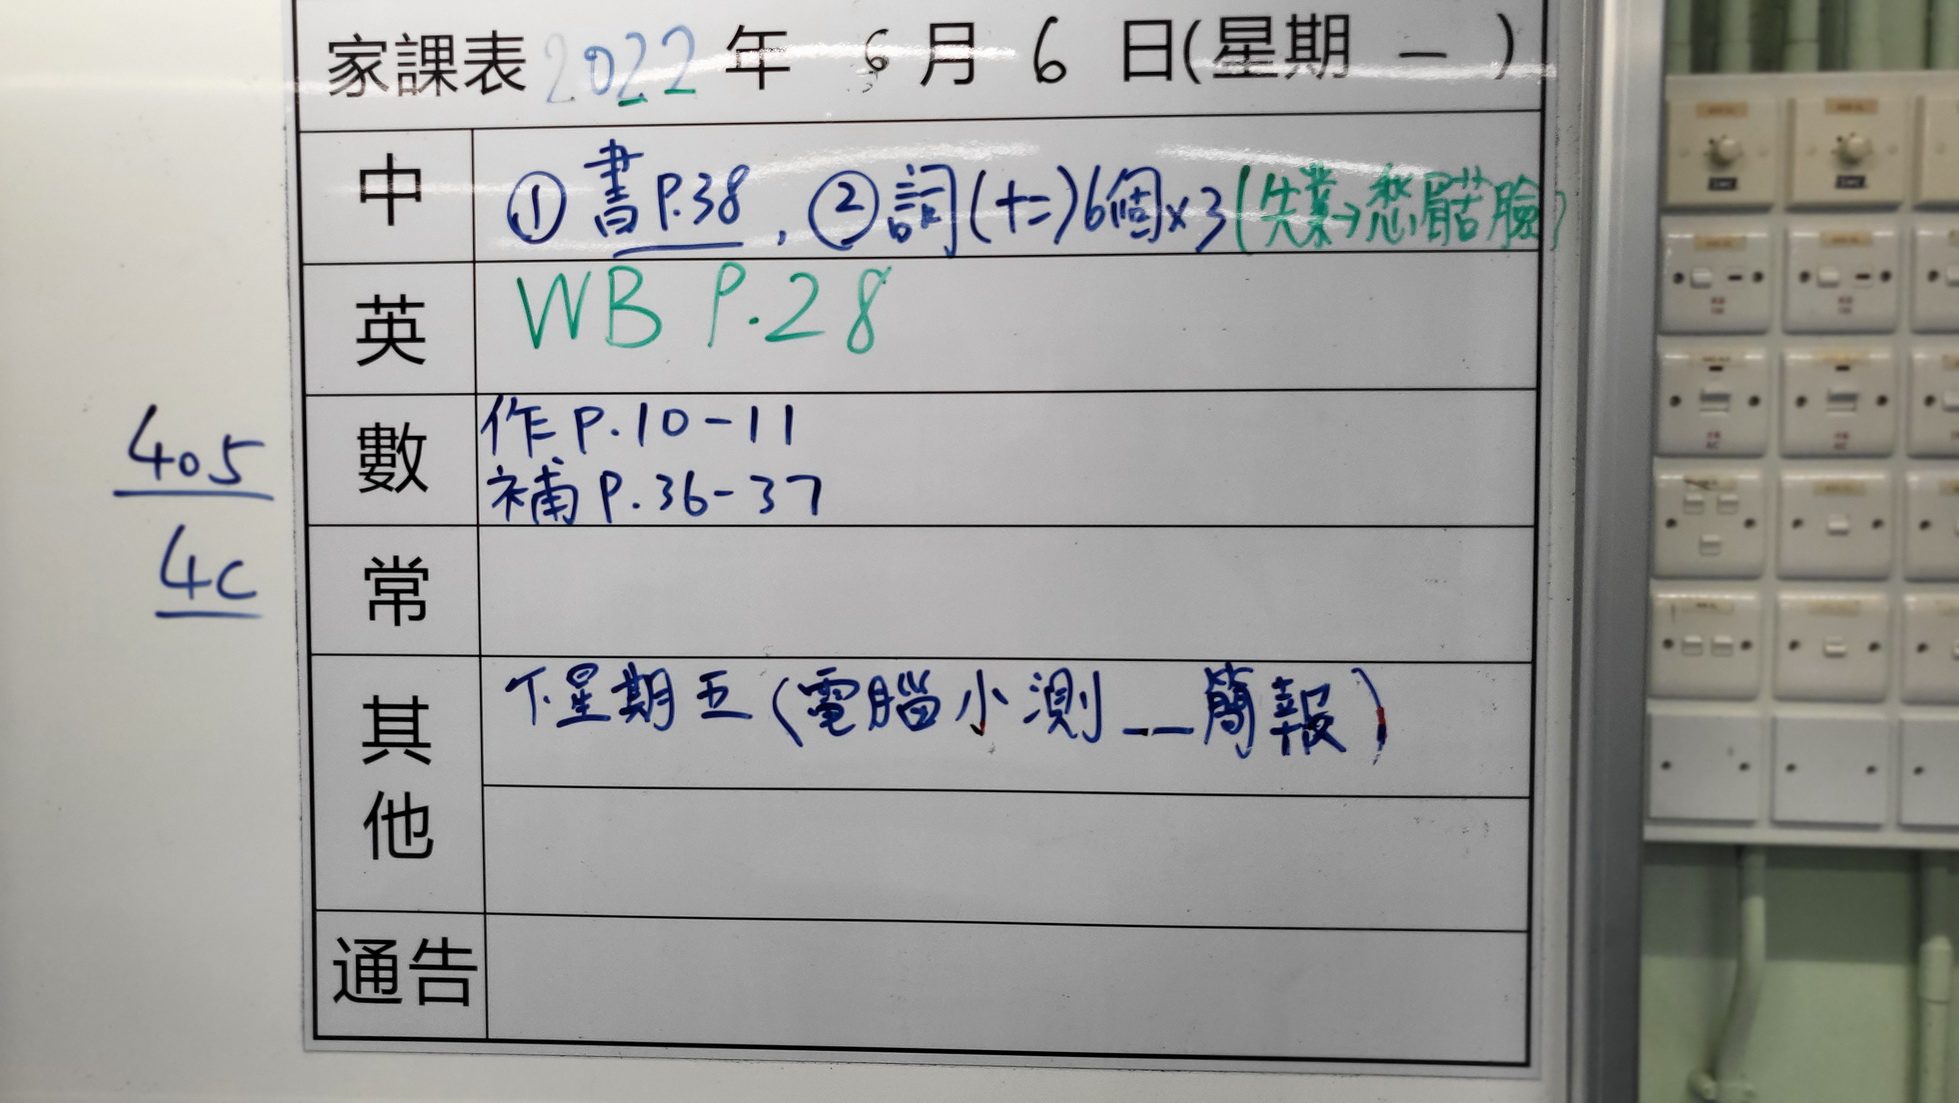 家課表 2022 年 6 月 6 日(星期 一 )
中
① 書 P.38 , ② 詞(十二)6個x3(失業→愁眉苦臉)
英
WB P.28
數
作 P.10-11
補 P.36-37
405
4C
常
其他
下星期五(電腦小測__簡報)
通告